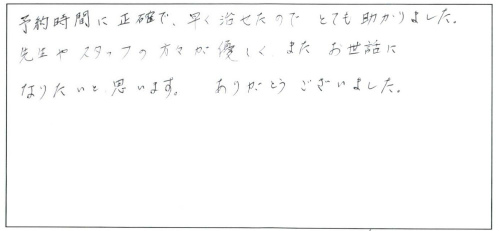 予約時間に正確で、早く治せたので とても助かりました。
先生やスタッフの方々が優しく、また お世話に
なりたいと思います。 ありがとうございました。